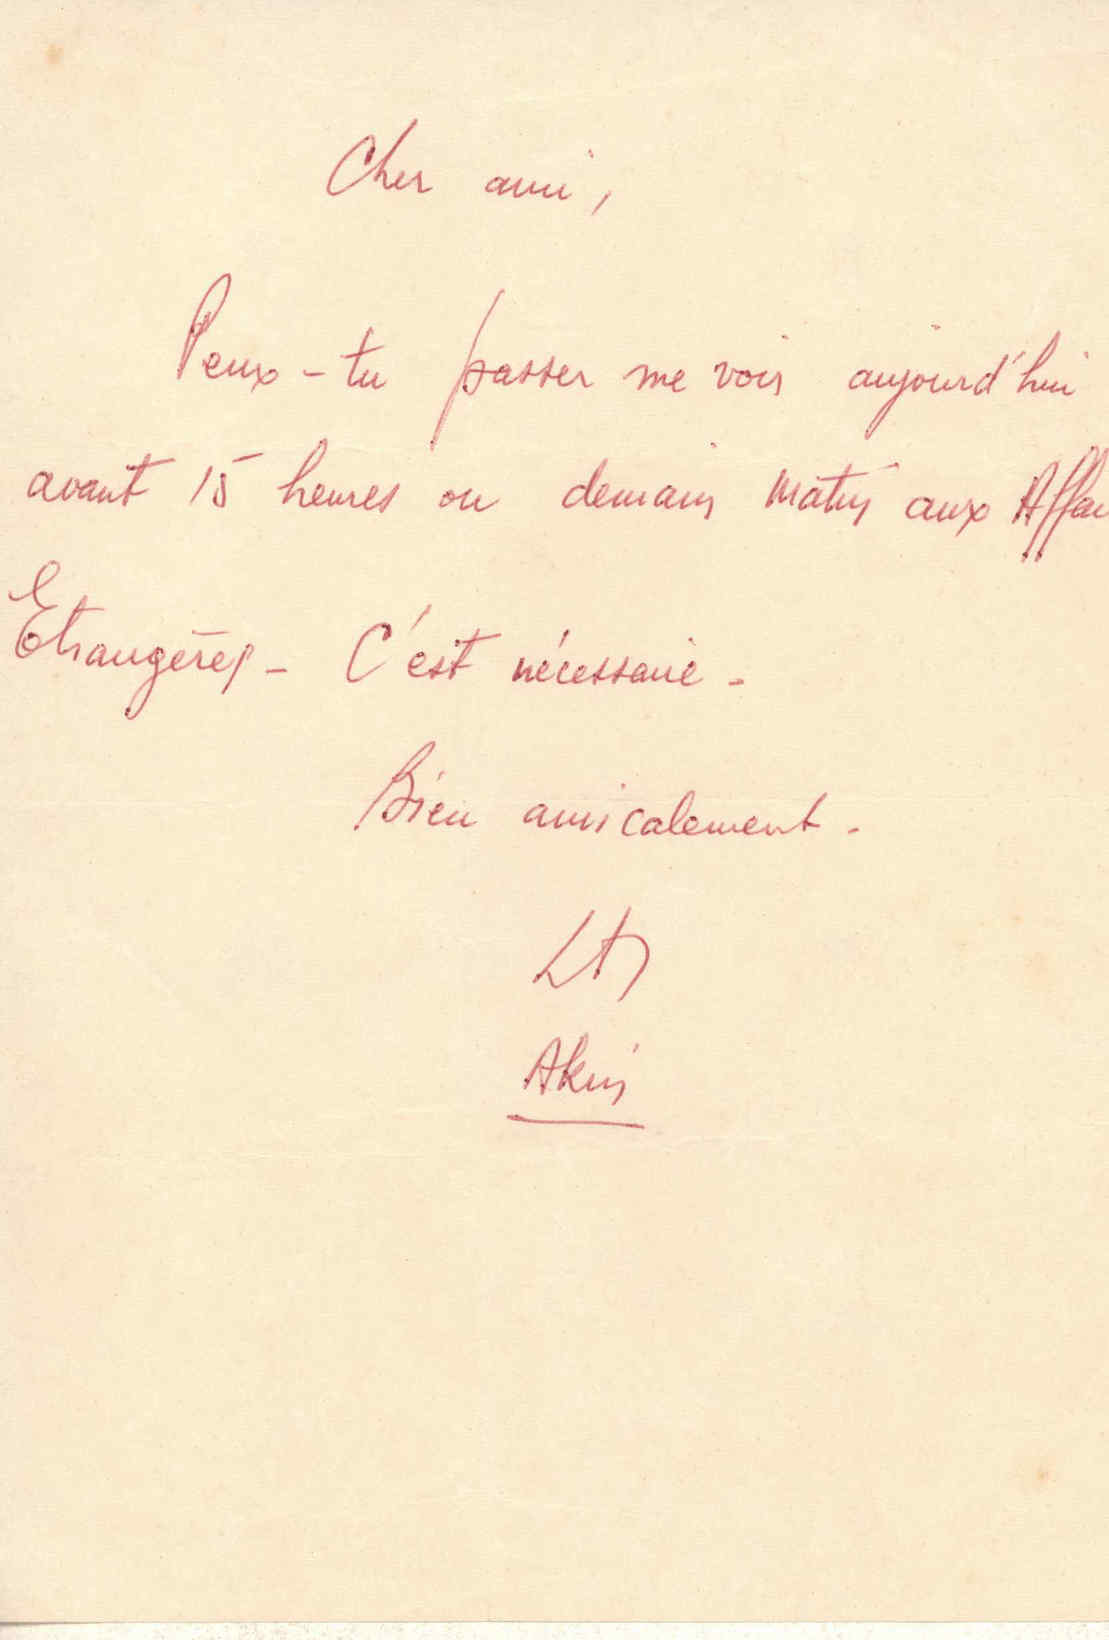 Cher ami,
Peux-tu passer me voir aujourd'hui
avant 15 heures ou demain matin aux Affai
Etrangères - C'est nécessaire -
Bien amicalement -
Akin